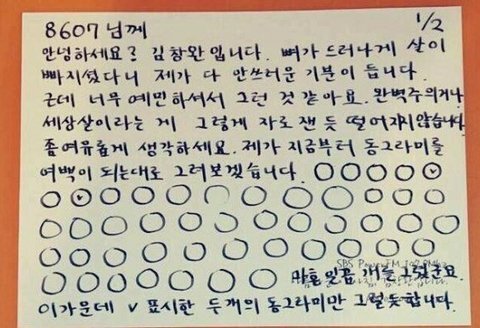 8607님께 1/2
안녕하세요? 김창완입니다. 뼈가 드러나게 살이
빠지셨다니 제가 다 안쓰러운 기분이 듭니다.
근데 너무 예민하셔서 그런 것 같아요. 완벽주의거나
세상살이라는 게 그렇게 자로 잰 듯 떨어지지 않습니다.
좀 여유롭게 생각하세요. 제가 지금부터 동그라미를
여백이 되는대로 그려보겠습니다.
SBS PowerFM 107.7Mhz
마흔 일곱 개를 그렸군요.
이 가운데 v 표시한 두 개의 동그라미만 그럴듯합니다.